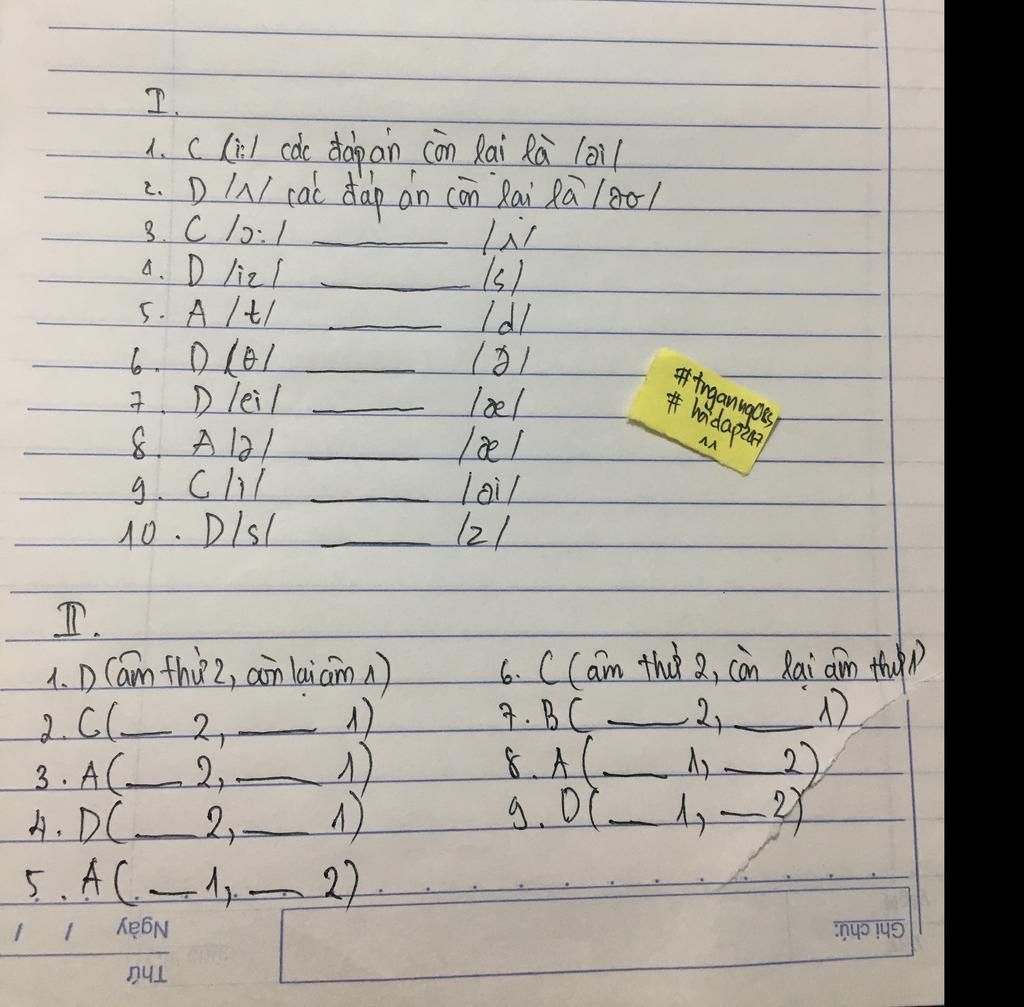 I.
1. C /i:/ các đáp án còn lại là /ai/
2. D /ʌ/ các đáp án còn lại là /əʊ/
3. C /ɔ:/ ______ /ʌ/
4. D /iz/ ______ /s/
5. A /t/ ______ /d/
6. D /θ/ ______ /ð/
7. D /ei/ ______ /æ/
8. A /ə/ ______ /æ/
9. C /i/ ______ /ai/
10. D /s/ ______ /z/
#
# hoidap247
^^
II.
1. D (âm thứ 2, còn lại âm 1)
2. C ( __ 2, ____ 1)
3. A ( __ 2, ____ 1)
4. D ( __ 2, ____ 1)
5. A ( __ 1, __ 2)
6. C (âm thứ 2, còn lại âm thứ 1)
7. B ( ____ 2, ____ 1)
8. A ( ____ 1, ____ 2)
9. D ( __ 1, __ 2)
Ngày / /
Thứ
Ghi chú: